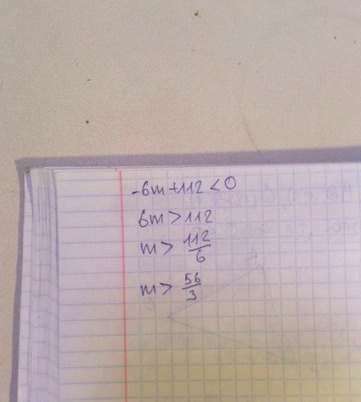 -6m+112<0
6m>112
m> 112/6
m> 56/3